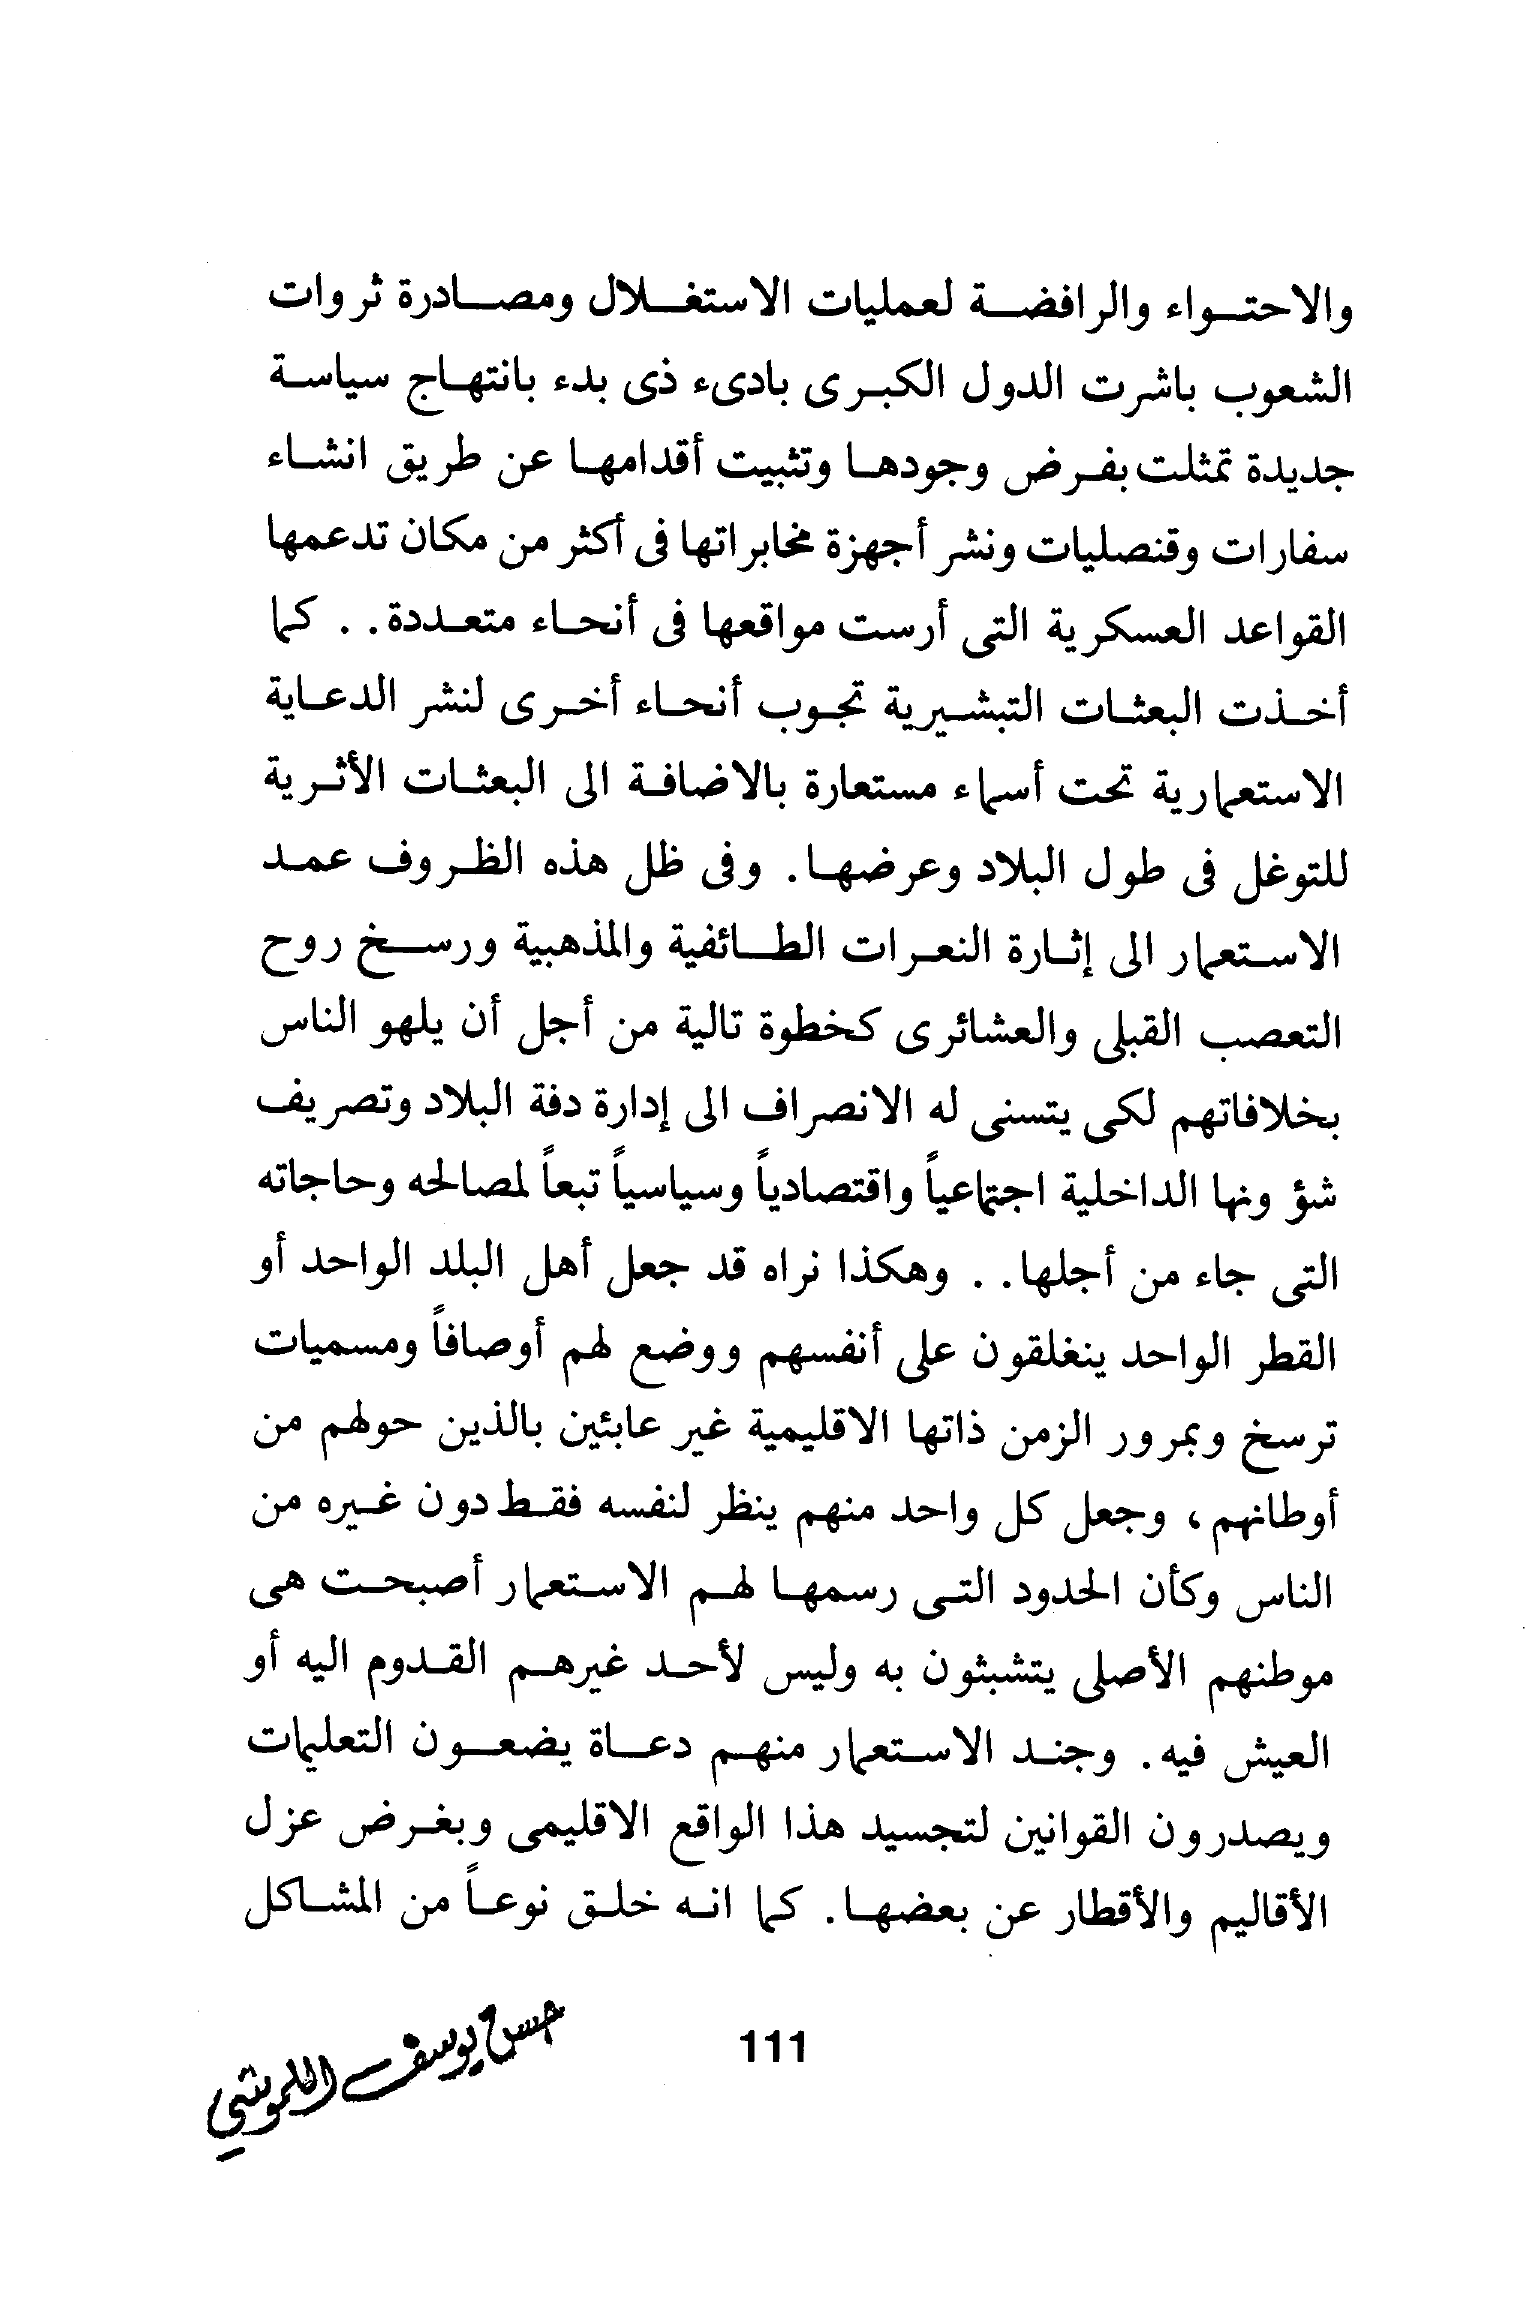 والاحتواء والرافضة لعمليات الاستغلال ومصادرة ثروات
الشعوب باشرت الدول الكبرى بادىء ذى بدء بانتهاج سياسة
جديدة تمثلت بفرض وجودها وتثبيت أقدامها عن طريق انشاء
سفارات وقنصليات ونشر أجهزة مخابراتها فى أكثر من مكان تدعمها
القواعد العسكرية التى أرست مواقعها فى أنحاء متعددة . . كما
أخذت البعثات التبشيرية تجوب أنحاء أخرى لنشر الدعاية
الاستعمارية تحت أسماء مستعارة بالاضافة الى البعثات الأثرية
للتوغل فى طول البلاد وعرضها . وفى ظل هذه الظروف عمد
الاستعمار الى إثارة النعرات الطائفية والمذهبية ورسخ روح
التعصب القبلى والعشائرى كخطوة تالية من أجل أن يلهو الناس
بخلافاتهم لكى يتسنى له الانصراف الى إدارة دفة البلاد وتصريف
شؤونها الداخلية اجتماعياً واقتصادياً وسياسياً تبعاً لمصالحه وحاجاته
التى جاء من أجلها . . وهكذا نراه قد جعل أهل البلد الواحد أو
القطر الواحد ينغلقون على أنفسهم ووضع لهم أوصافاً ومسميات
ترسخ وبمرور الزمن ذاتها الاقليمية غير عابئين بالذين حولهم من
أوطانهم ، وجعل كل واحد منهم ينظر لنفسه فقط دون غيره من
الناس وكأن الحدود التى رسمها لهم الاستعمار أصبحت هى
موطنهم الأصلى يتشبثون به وليس لأحد غيرهم القدوم اليه أو
العيش فيه . وجند الاستعمار منهم دعاة يضعون التعليمات
ويصدرون القوانين لتجسيد هذا الواقع الاقليمى وبغرض عزل
الأقاليم والأقطار عن بعضها . كما انه خلق نوعاً من المشاكل
111
حسن يوسف